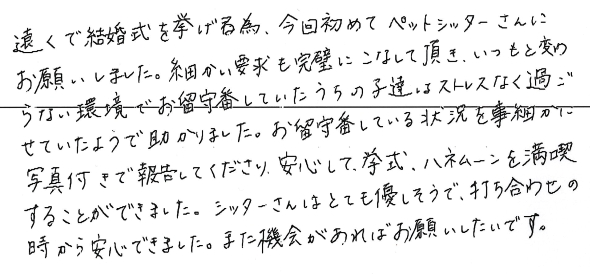 遠くで結婚式を挙げる為、今回初めてペットシッターさんに
お願いしました。細かい要求も完璧にこなして頂き、いつもと変わ
らない環境でお留守番していたうちの子達はストレスなく過ご
せていたようで助かりました。お留守番している状況を事細かに
写真付きで報告してくださり、安心して、挙式、ハネムーンを満喫
することができました。シッターさんはとても優しそうで、打ち合わせの
時から安心できました。また機会があればお願いしたいです。